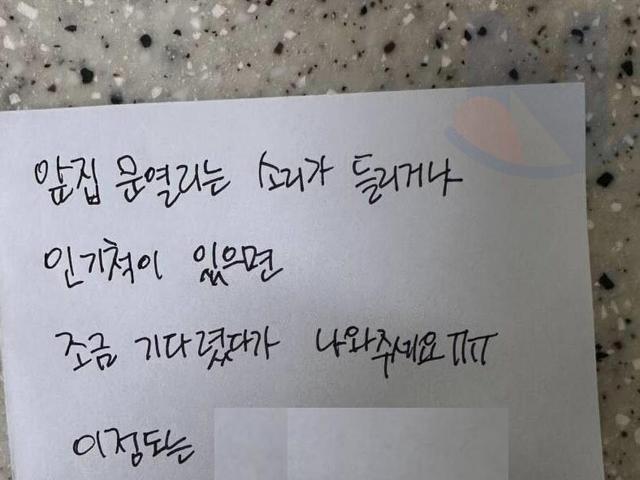 앞집 문열리는 소리가 들리거나
인기척이 있으면
조금 기다렸다가 나와주세요 ㅠㅠ
이정도는